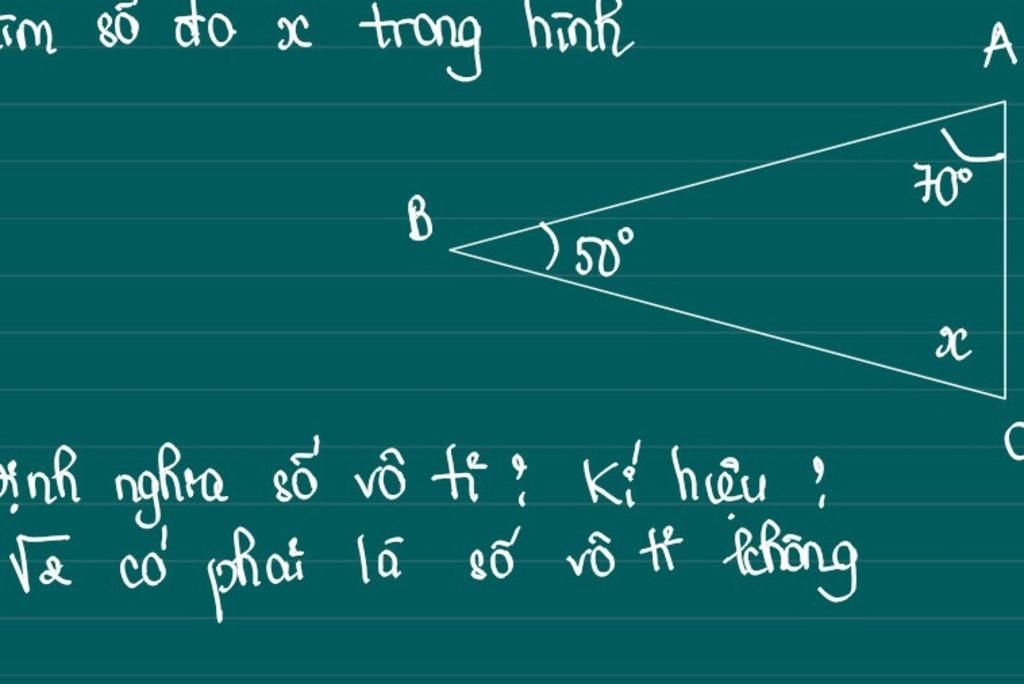 ìm số đo x trong hình
A
70°
B
50°
x
C
Định nghĩa số vô tỉ? Kí hiệu?
√2 có phải là số vô tỉ không